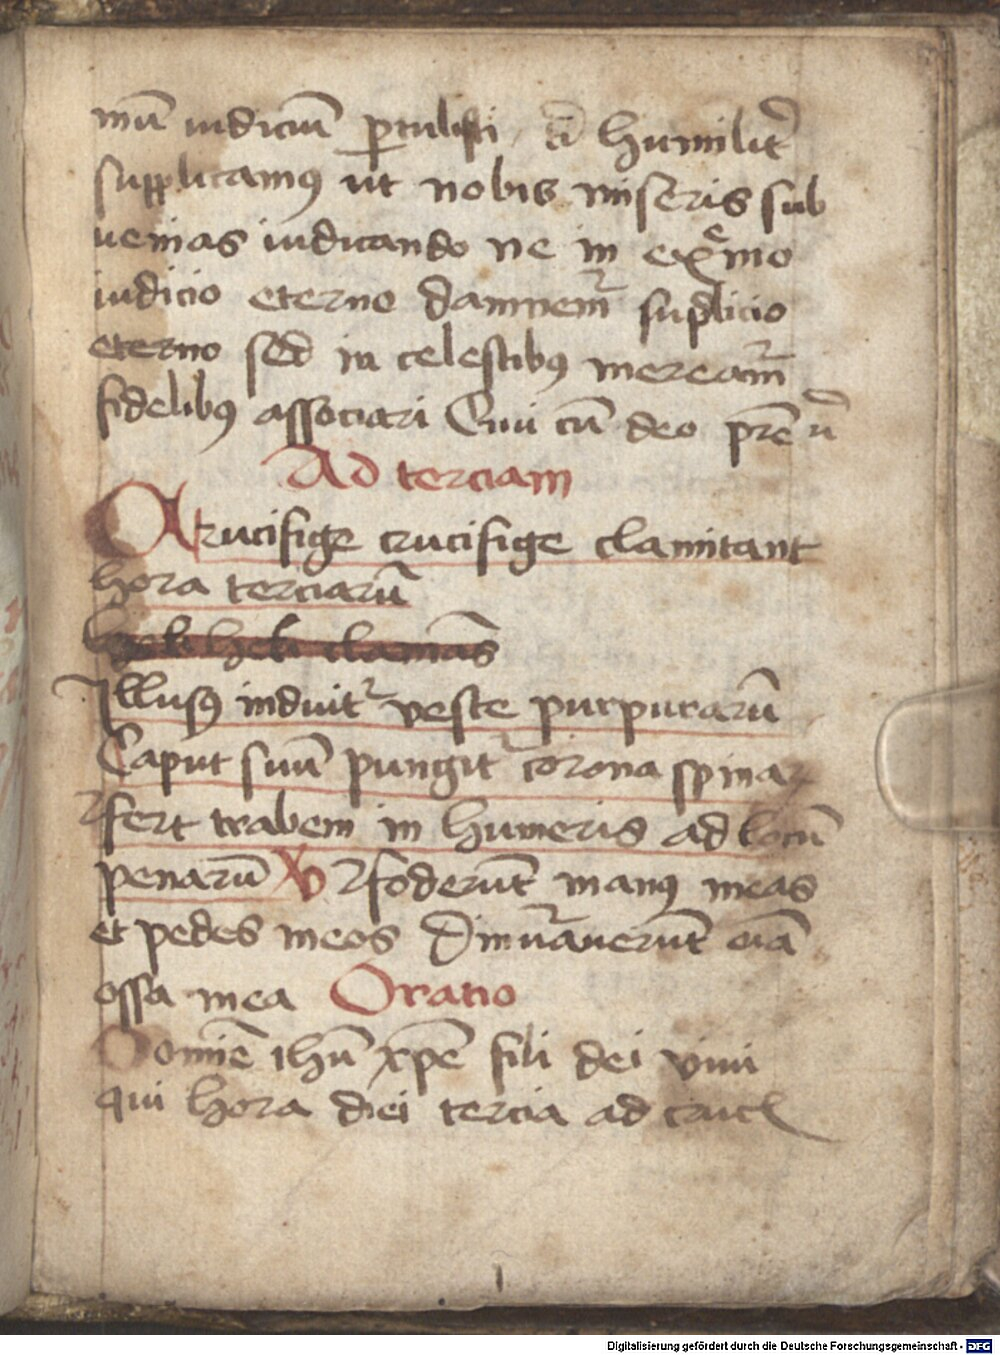 mū iudiciū ꝑtulisti, tē humilit᷑
supplicamꝰ ut nobis miseris sub
uenias iudicando ne in ext᷑mo
iudicio eterno damnem᷑ suplicio
eterno sed in celestibꝰ mereām᷑
fidelibꝰ associari Qui cū deo pr̄e
Ad terciam
Crucifige crucifige clamitant
hora terciarū
heli heli clamās
Illusꝰ induit᷑ veste purpurarū
Caput suū pungit᷑ corona spinaꝝ
Ꝛfert trabem in humeris ad locū
penarū Ꝟ Ꝛfoderūt manꝰ meas
et pedes meos Dinu᷑auerūt oīa
ossa mea Oratio
Domīe ihū xp̄e fili dei viui
qui hora diei tercia ad crucē
Digitalisierung gefördert durch die Deutsche Forschungsgemeinschaft - DFG